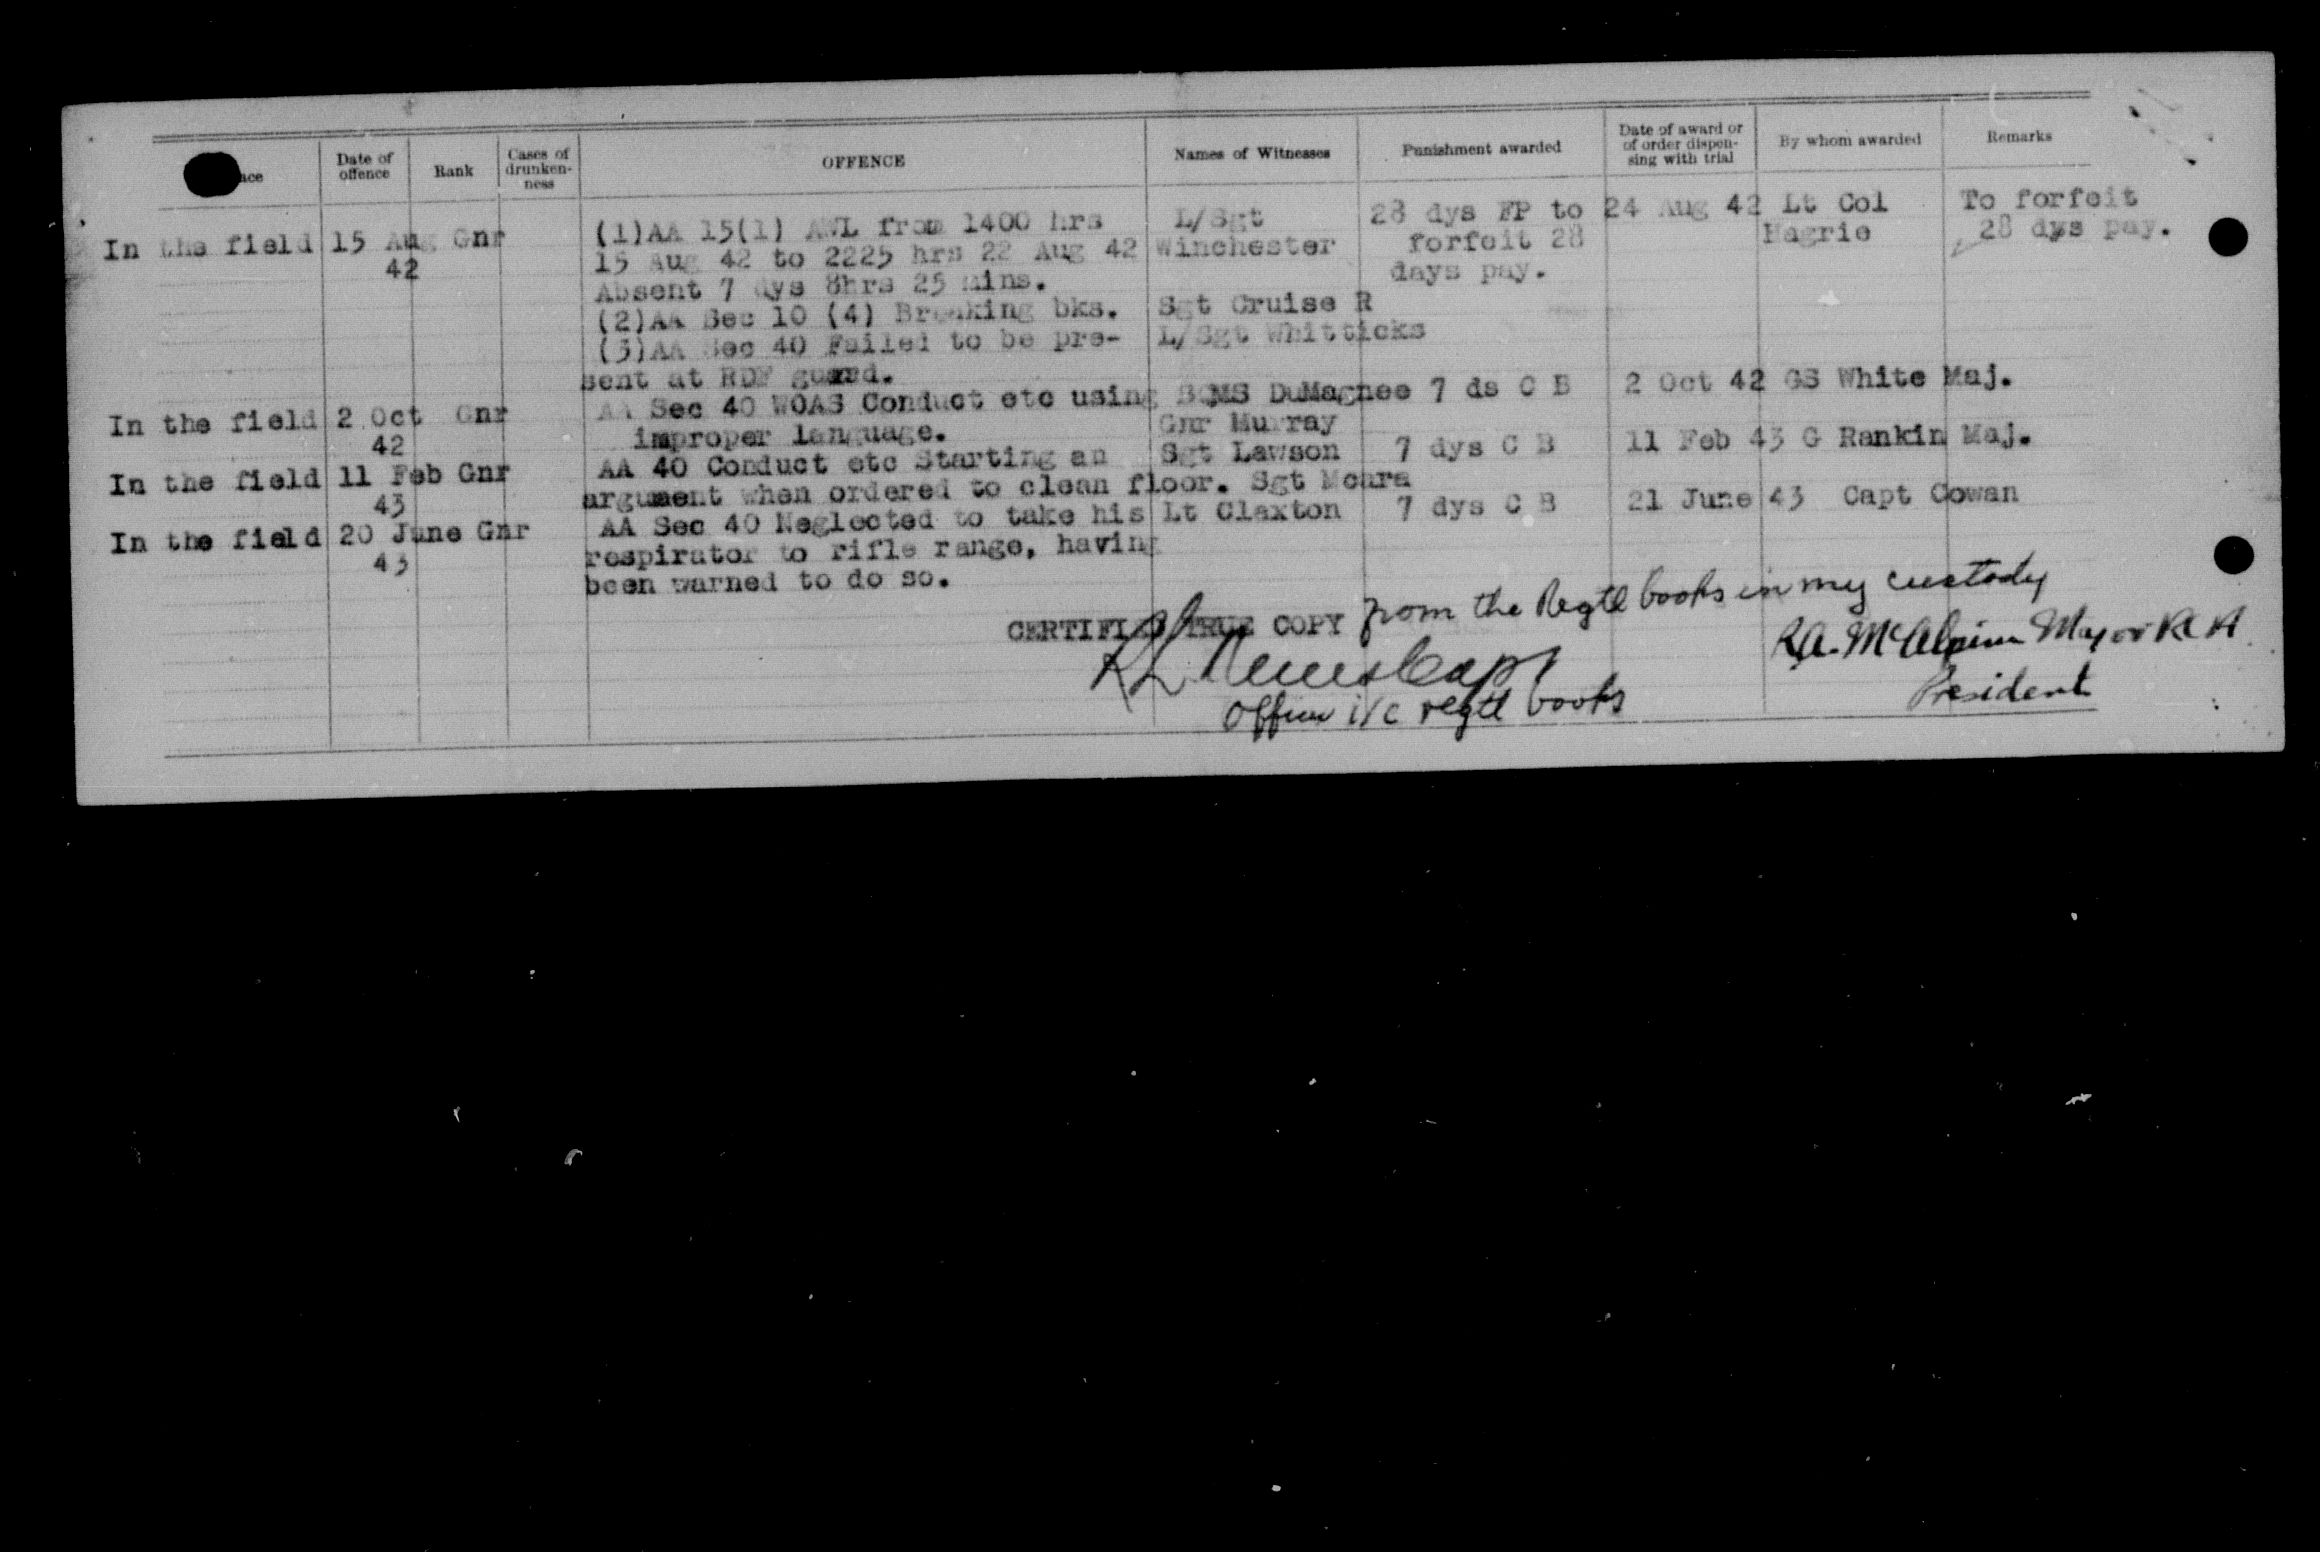 Date of offence Rank Cases of drunken-ness OFFENCE Names of Witnesses Punishment awarded Date of award or of order dispen-sing with trial By whom awarded Remarks
In the field 15 Aug 42 Gnr (1)AA 15(1) AWL from 1400 hrs L/Sgt 28 dys FP to 24 Aug 42 Lt Col To forfeit
15 Aug 42 to 2225 hrs 22 Aug 42 Winchester forfeit 28 Hagrie 28 dys pay.
Absent 7 dys 8hrs 25 mins. days pay.
(2)AA Sec 10 (4) Breaking bks. Sgt Cruise R
(3)AA Sec 40 Failed to be pre- L/Sgt Whitticks
sent at RDF guard.
In the field 2 Oct 42 Gnr AA Sec 40 WOAS Conduct etc using DuMagnee 7 ds C B 2 Oct 42 GS White Maj.
improper language. Gnr Murray
In the field 11 Feb 43 Gnr AA 40 Conduct etc Starting an Sgt Lawson 7 dys C B 11 Feb 43 G Rankin Maj.
argument when ordered to clean floor. Sgt Mcara
In the field 20 June 43 Gnr AA Sec 40 Neglected to take his Lt Claxton 7 dys C B 21 June 43 Capt Cowan
respirator to rifle range, having
been warned to do so.
CERTIFIED TRUE COPY from the Regtl books in my custody
Capt
Officer i/c regtl books
R.A. McAlpine Major RCA
President